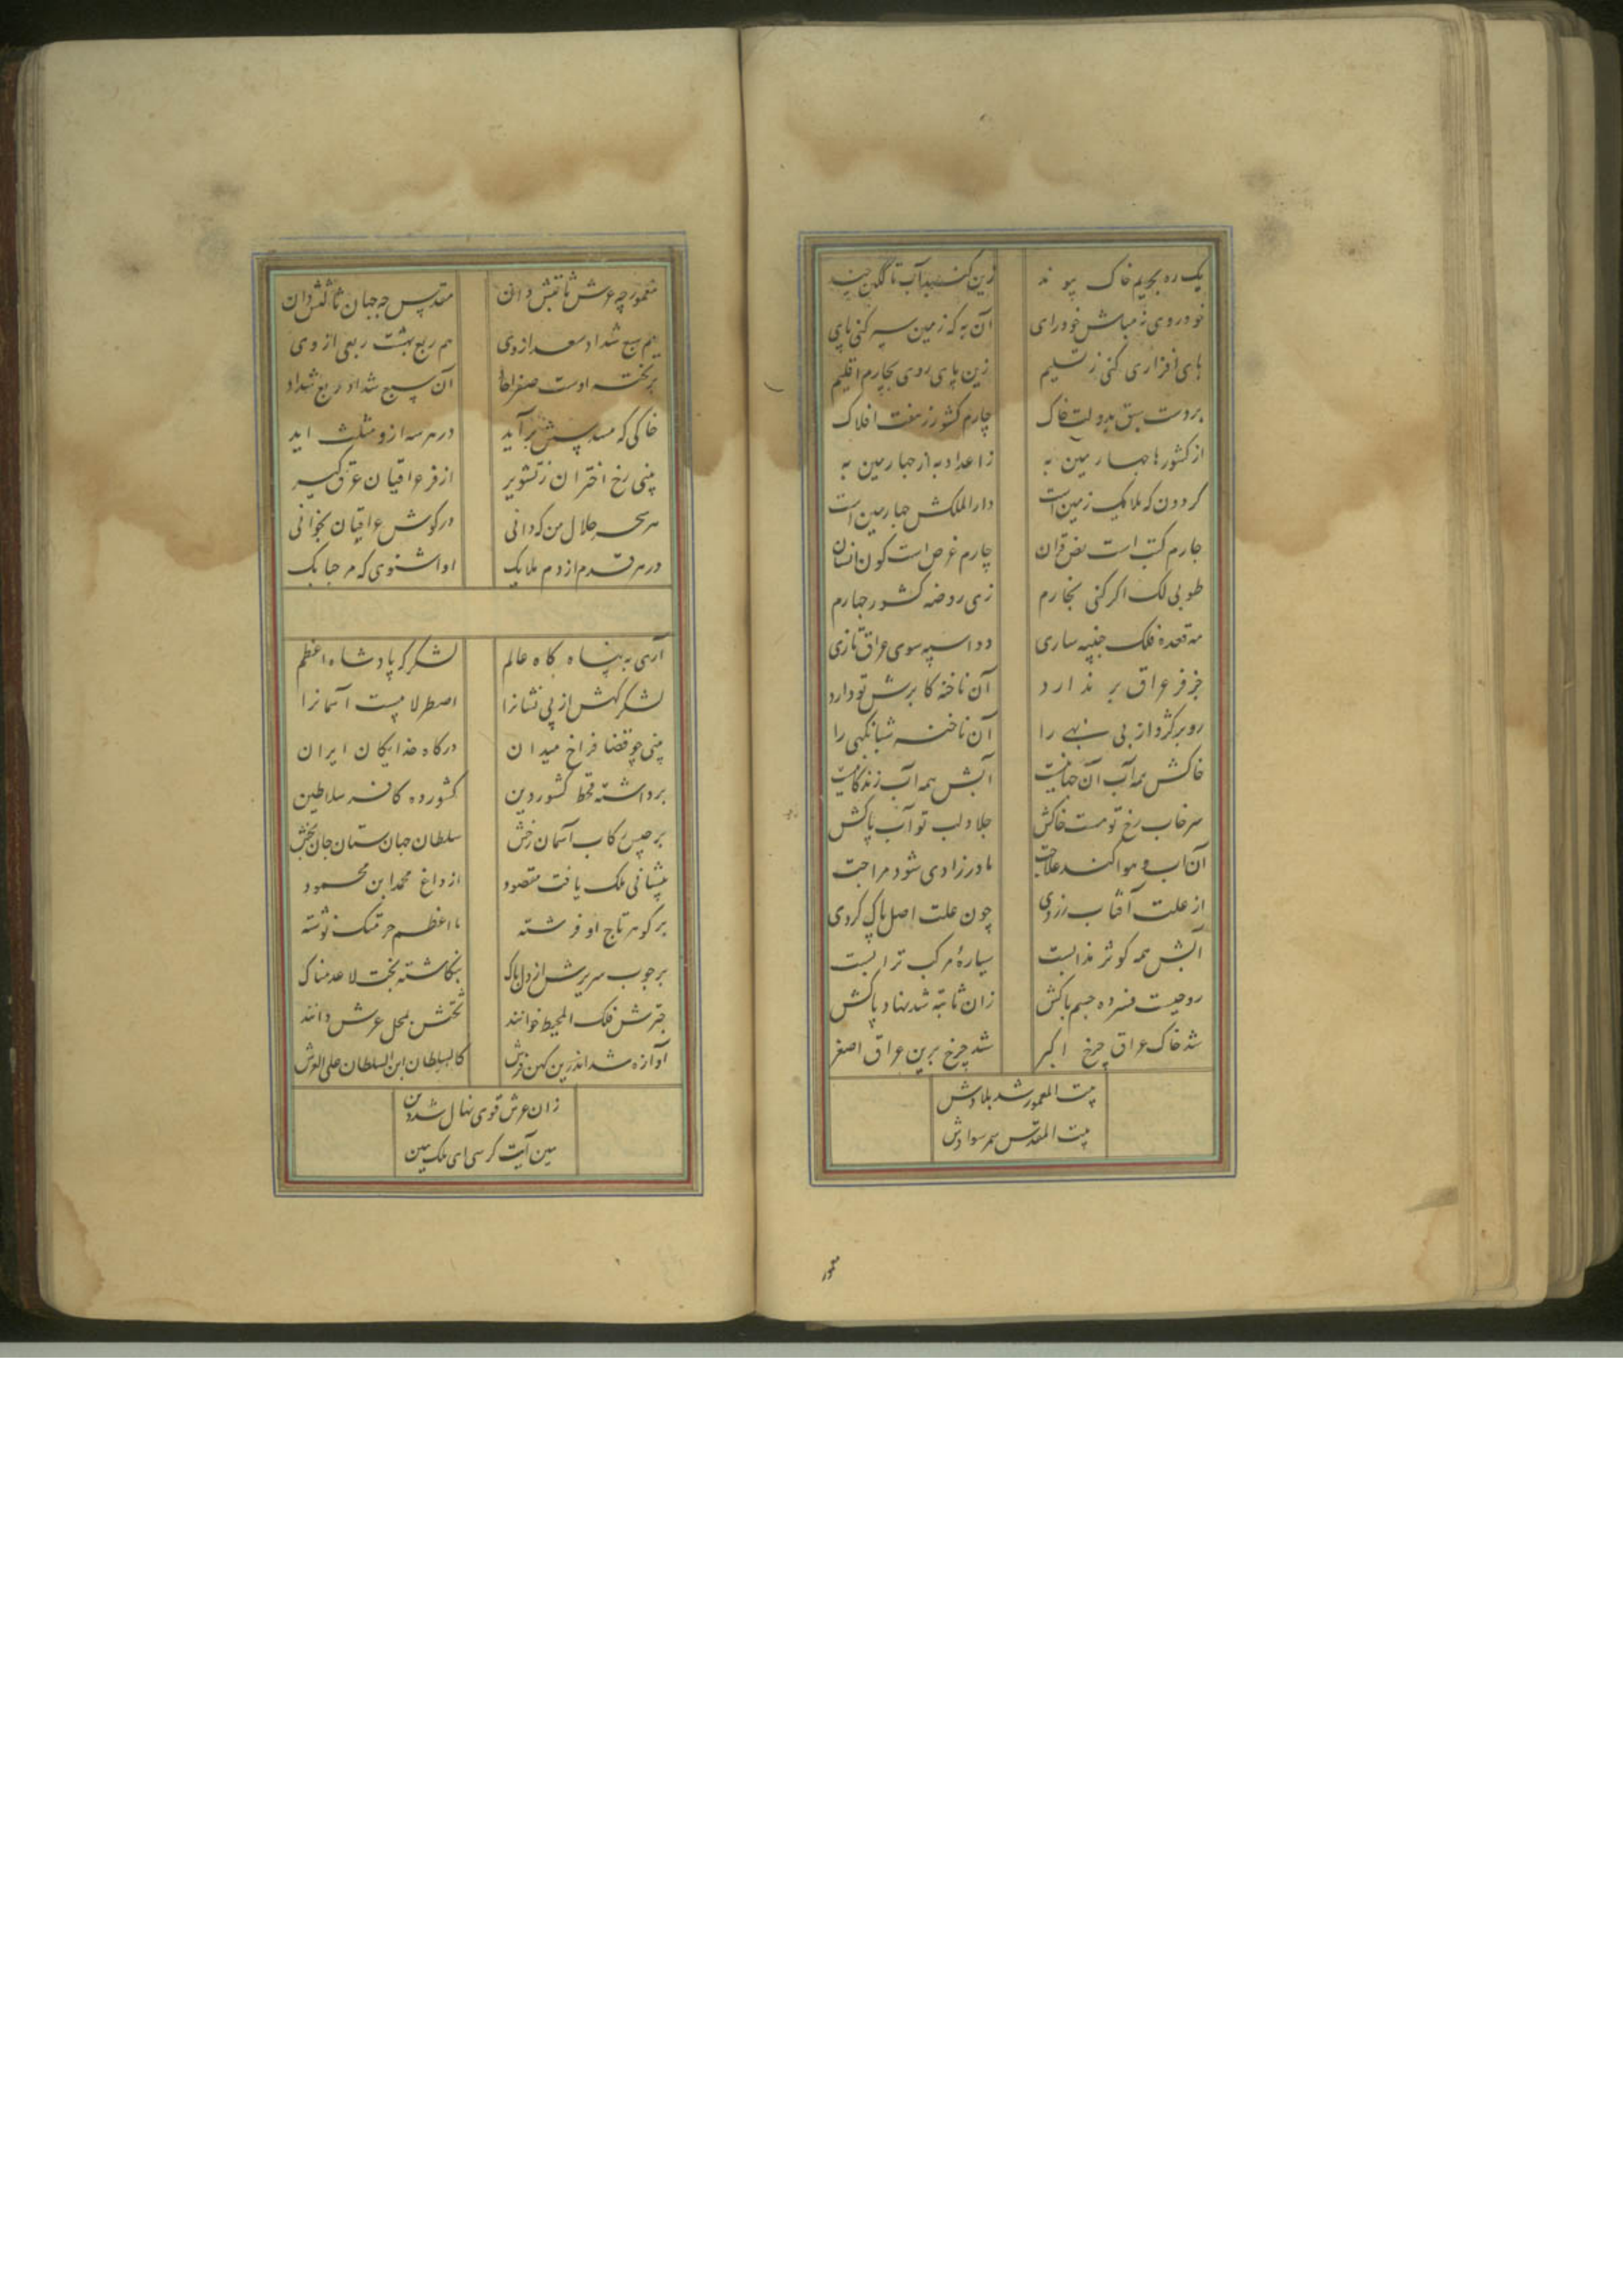 یک ره بحریم خاک پیوند زین گنبد آب تا گون چند
خودروی زمی مباش خودرای آن به که زمین سپر کنی پای
پای افزاری کنی ز تسلیم زین پای روی بچارم اقلیم
بردست سبق بدولت خاک چارم کشور ز هفت افلاک
از کشورها چهارمین به زاعداد به از چهارمین به
گردون که ملایک زمین است دارالملکش چهارمین است
چارم کتب است نص قرآن چارم غرض است کون انسان
طوبی لک اگر کنی بچارم زی روضه کشور چهارم
مه قعده فلک جنیبه سازی دو اسپه سوی عراق تازی
جز فر عراق بر ندارد آن ناخنه کابرش تو دارد
رو بر گرد از پی بهی را آن ناخنه شبانگهی را
خاکش همه آب آن جهانیست آبش همه آب زندگانیست
سرخاب رخ تو هست خاکش جلاب لب تو آب پاکش
آن آب و هوا کند علاجت مادرزادی شود مزاجت
از علت آفتاب زردی چون علت اصل پاک گردی
آبش همه کوثر مذابست سیاره مرکب ترابست
روحیست فسرده جسم پاکش زان ثابته شد نهاد پاکش
شد خاک عراق چرخ اکبر شد چرخ برین عراق اصغر
بیت المعمور شد بلادش
بیت المقدس سر سوادش
معمور
معمور چه عرش ثانیش دان مقدس چه جهان ثالثش دان
هم سبع شداد سعد از وی هم ربع بهشت ربعی از وی
بر تخته اوست صفر آحاد آن سبع شداد و ربع شداد
خاکی که مسدسش بر آید در هر سه ازو مثلث آید
بینی رخ اختران ز تشویر از فر عراقیان عرق گیر
هر سحر حلال من که دانی در گوش عراقیان بخوانی
در هر قدم از دم ملایک آوا شنوی که مرحبا بک
آری به پناه گاه عالم لشکرگه پادشاه اعظم
لشکرگهش از پی نشانرا اصطرلابیست آسمانرا
بینی چو قضا فراخ میدان درگاه خدایگان ایران
برداشته قحط کشور دین کشور ده کافه سلاطین
برجیس رکاب آسمان رخش سلطان جهان ستان جان بخش
پیشانی ملک یافت مقصود از داغ محمد ابن محمود
بر گوهر تاج او فرشته ما اعظم حرمتک نوشته
بر چوب سریرش از دل پاک بنگاشته بخت لاعدمناک
چترش فلک المحیط خوانند تختش بمحل عرش دانند
آوازه شد اندرین کهن فرش کالسلطان ابن السلطان علی العرش
زان عرش قوی نهال شد دین
بین آیت کرسی ای ملک بین